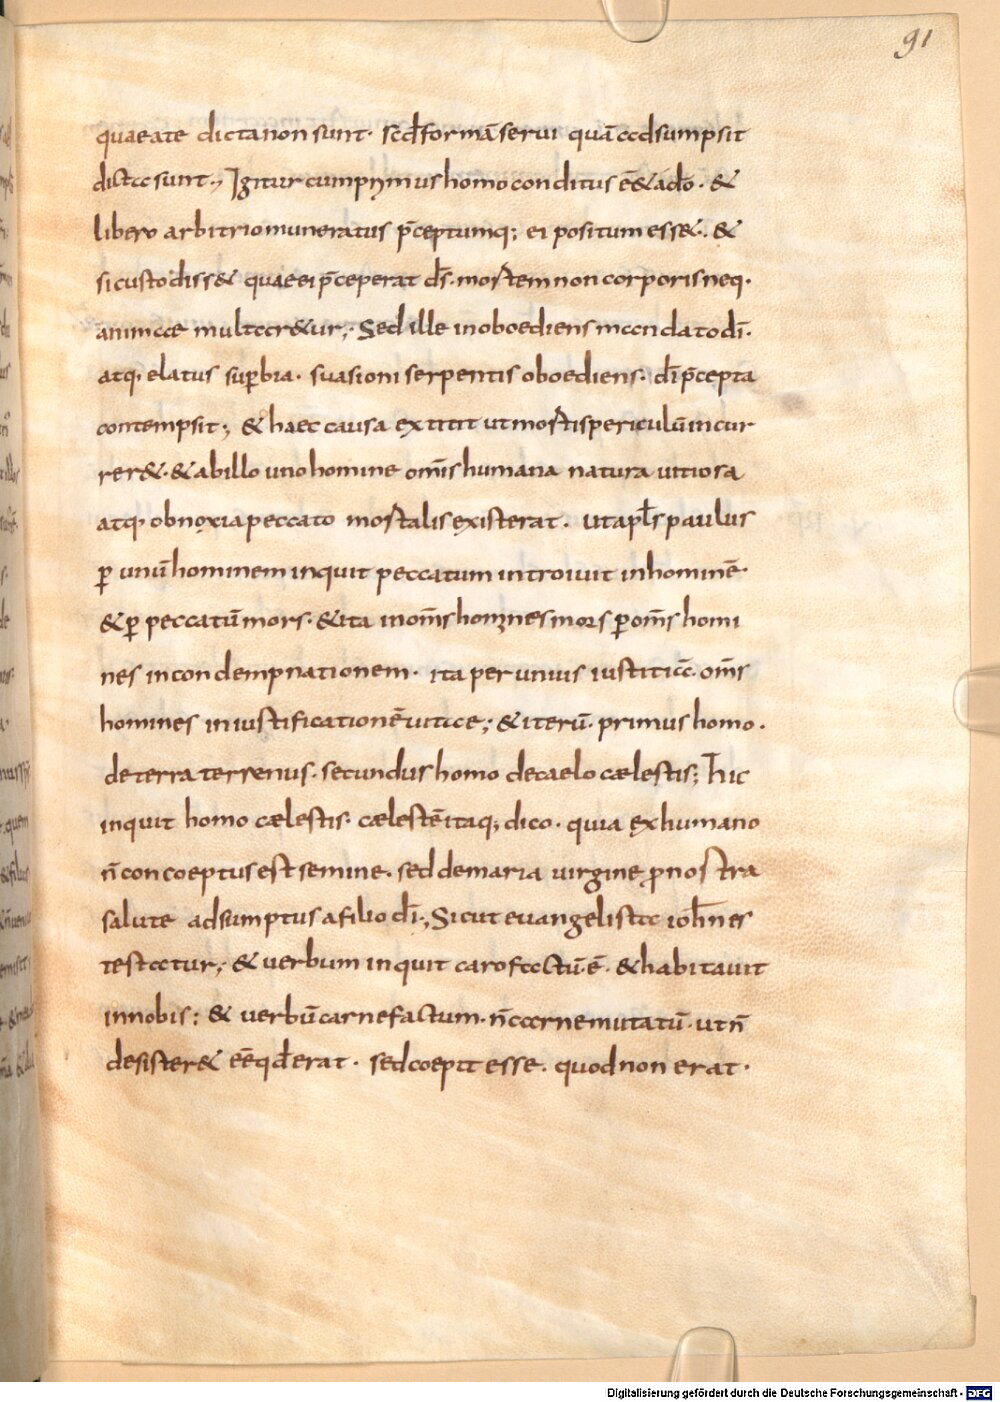 91
quae ate dicta non sunt· sed formā servi quā adsumpsit
dicta sunt; Igitur cum prymus homo conditus ē& a dō· &
libero arbitrio muneratus p̄ceptumq; ei positum ess&· &
si custodiss& quae ei p̄ceperat d̄s· mortem non corporis neq·
animae multar&ur; Sed ille inoboediens mandato dī·
atq, elatus sup̱bia· suasioni serpentis oboediens· dī p̄cepta
contempsit; & haec causa extitit ut mortis periculū incur
rer&· & ab illo uno homine om̄is humana natura vitiosa
atq, obnoxia peccato mortalis existerat· ut apl̄s paulus
p̱ unū hominem inquit peccatum introivit in hominē·
& p̱ peccatū mors· & ita in om̄s homines mors p̱ om̄s homi
nes in condempnationem· ita per unius iustitiā· om̄s
homines in iustificationē vitae; & iterū· primus homo·
de terra terrenus· secundus homo de caelo cælestis; hic
inquit homo cælestis· cælestē itaq, dico· quia ex humano
n̄ conceptus est semine· sed de maria virgine p̱ nostra
salute adsumptus a filio dī; Sicut evangelista ioh̄nes
testatur; & verbum inquit caro factū ē· & habitavit
in nobis; & verbū carne factum· n̄ carne mutatū· ut n̄
desister& eē qd̄ erat· sed coepit esse· quod non erat·
Digitalisierung gefördert durch die Deutsche Forschungsgemeinschaft · DFG